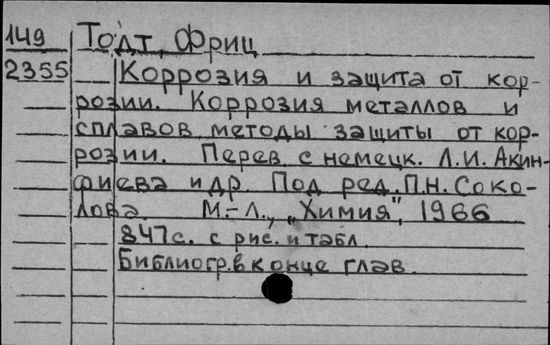 149 Тодт, Фриц
2355 Коррозия и защита от кор-
розии. Коррозия металлов и
сплавов методы защиты от кор-
розии. Перев с немецк. Л.И. Акин-
фиева и др Под ред. П.Н. Соко-
лова. М.-Л., „Химия", 1966
847с. с рис. и табл.
Библиогр. в конце глав.